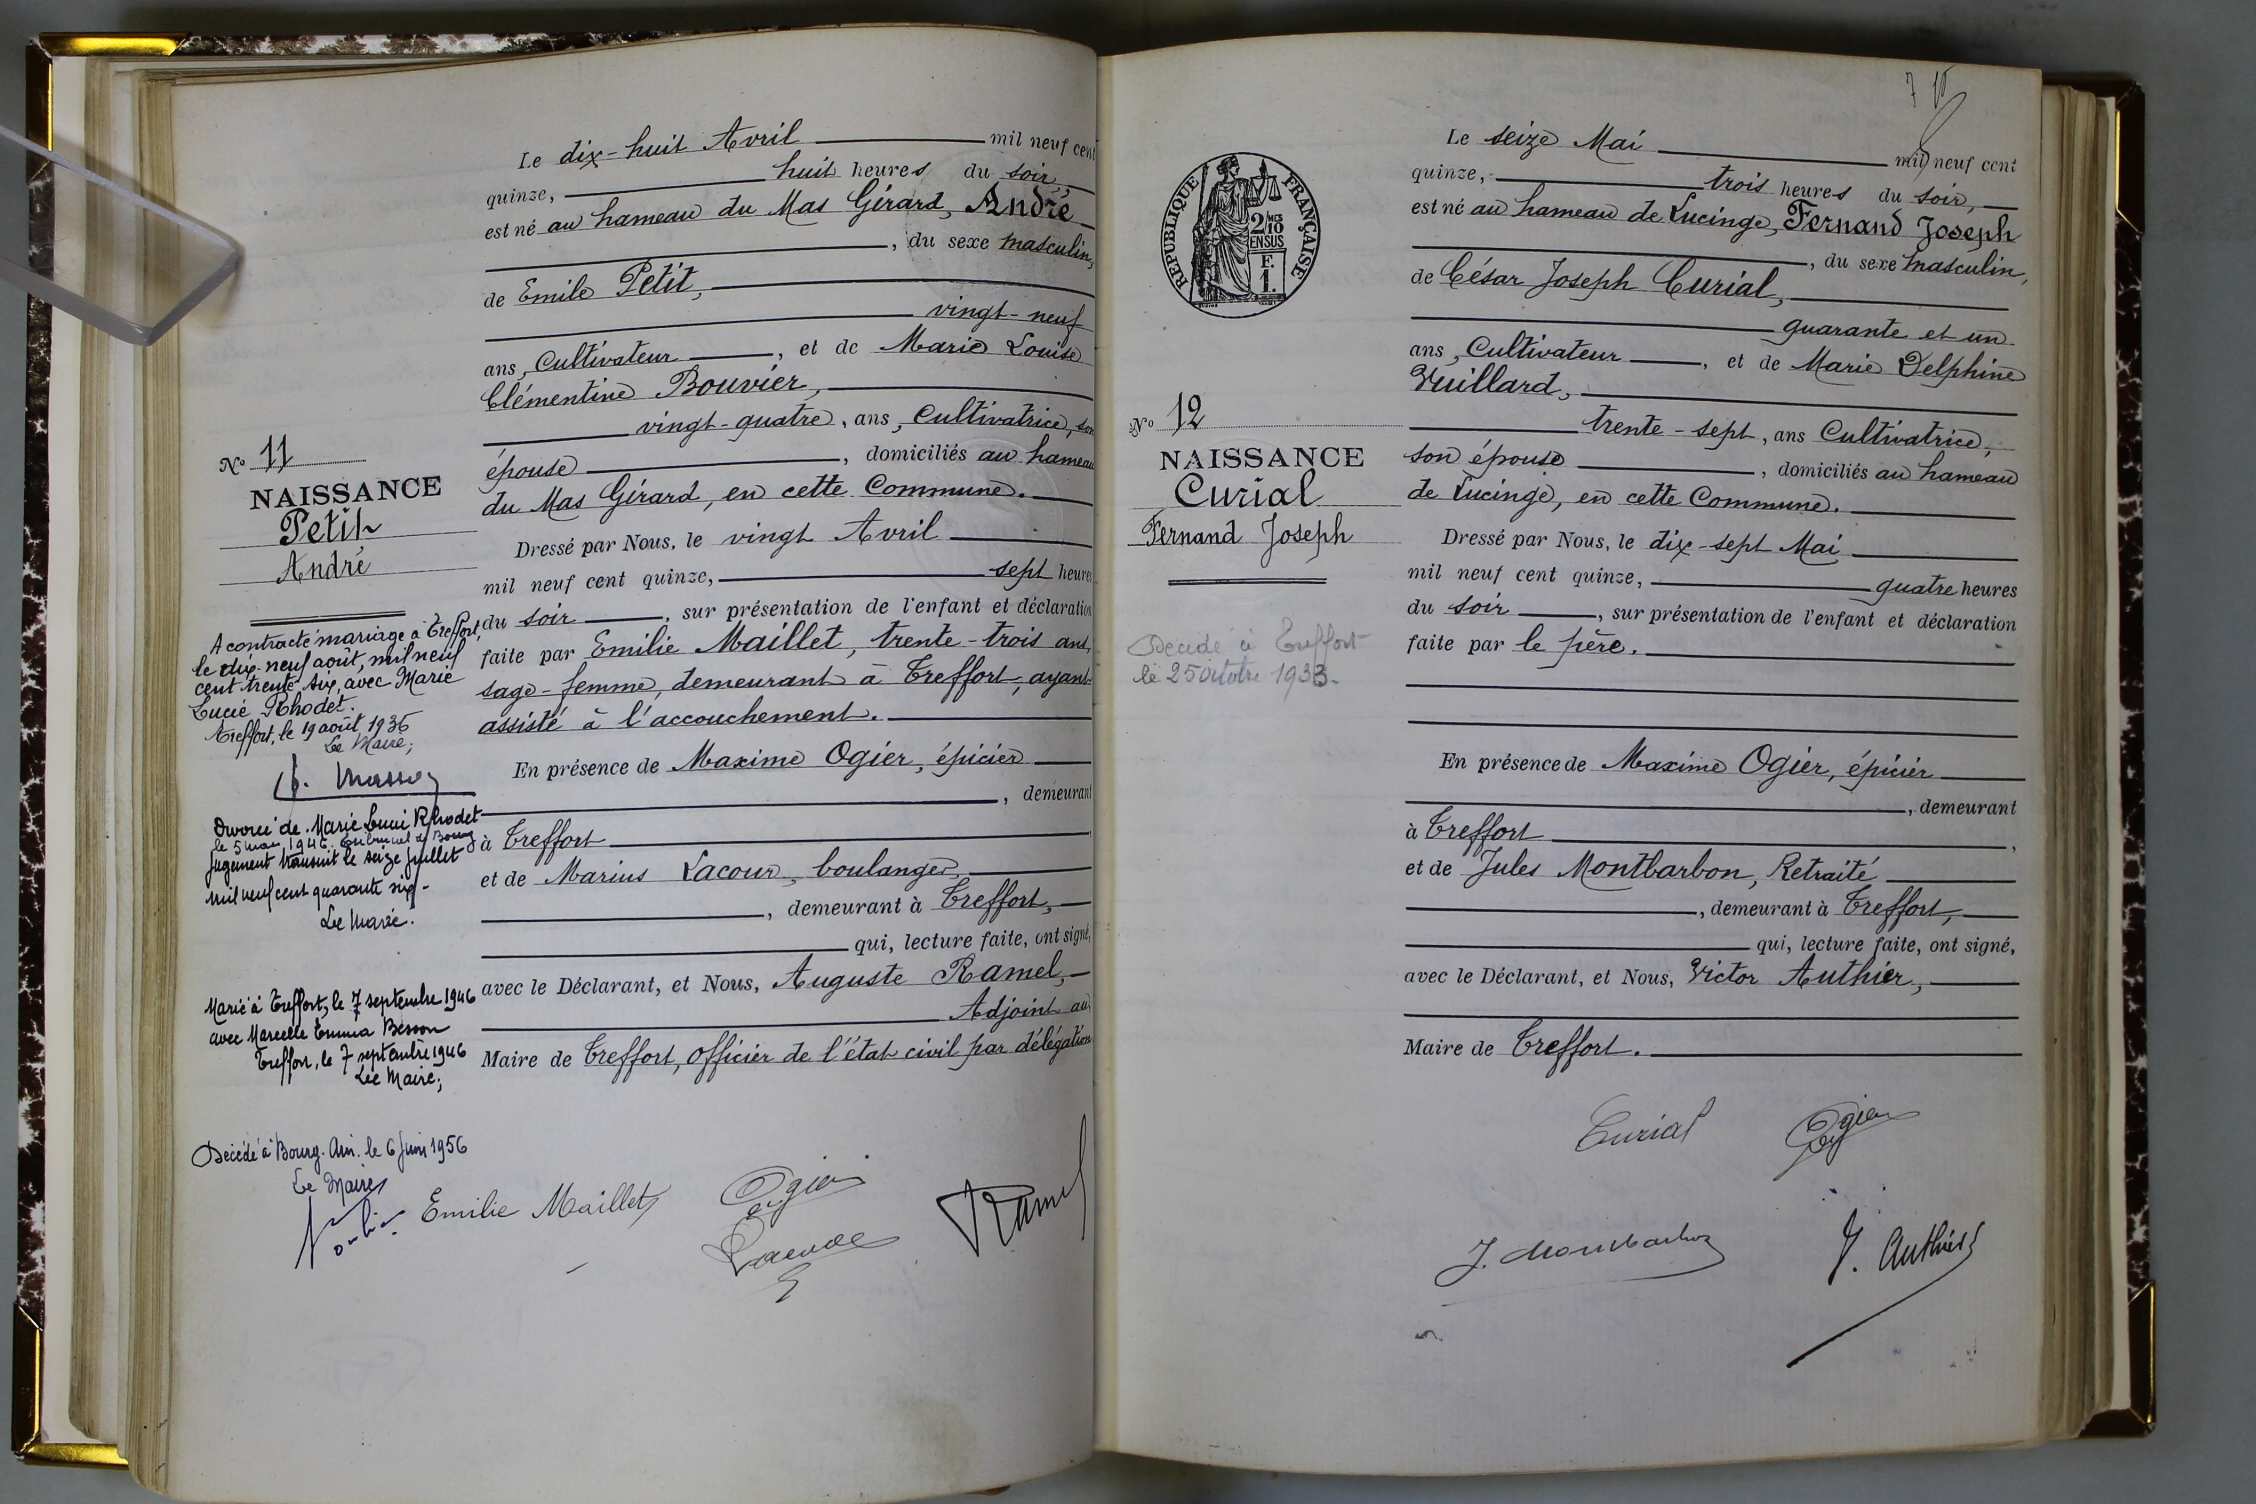 Le dix-huit Avril mil neuf cent
quinze, huit heures du soir,
est né au hameau du Mas Gérard, André
, du sexe masculin,
de Emile Petit,
vingt-neuf
ans, Cultivateur, et de Marie Louise
Clémentine Bouvier,
vingt-quatre, ans, Cultivatrice, son
épouse, domiciliés au hameau
du Mas Gérard, en cette Commune.
Dressé par Nous, le vingt Avril
mil neuf cent quinze, sept heures
du soir, sur présentation de l'enfant et déclaration
faite par Emilie Maillet, trente-trois ans,
sage-femme, demeurant à Treffort, ayant
assisté à l'accouchement.
En présence de Maxime Ogier, épicier
, demeurant
à Treffort
et de Marius Lacour, boulanger,
, demeurant à Treffort,
qui, lecture faite, ont signé,
avec le Déclarant, et Nous, Auguste Ramel,
Adjoint au
Maire de Treffort, officier de l'état civil par délégation
Emilie Maillet
Ogier
Ramel
N° 11
NAISSANCE
Petit
André
A contracté mariage à Treffort,
le dix-neuf août, mil neuf
cent trente six, avec Marie
Lucie Rhodet.
Treffort, le 19 août 1936
Le Maire;
Divorcé de Marie Lucie Rhodet
le 5 mai 1946. Tribunal de Bourg
Jugement transcrit le seize juillet
mil neuf cent quarante six-
Le Maire.
Marié à Treffort, le 7 septembre 1946
avec Marcelle Emma Besson
Treffort, le 7 septembre 1946
Le Maire;
Décédé à Bourg. Ain. le 6 Juin 1956
Le Maire
7
REPUBLIQUE FRANÇAISE
2/10 EN SUS
F. 1.
N° 12
NAISSANCE
Curial
Fernand Joseph
Décédé à Treffort
le 25 octobre 1933-
Le seize Mai mil neuf cent
quinze, trois heures du soir,
est né au hameau de Lucinge, Fernand Joseph
, du sexe masculin,
de César Joseph Curial,
quarante et un
ans, Cultivateur, et de Marie Delphine
Vuillard,
trente-sept, ans Cultivatrice,
son épouse, domiciliés au hameau
de Lucinge, en cette Commune.
Dressé par Nous, le dix-sept Mai
mil neuf cent quinze, quatre heures
du soir, sur présentation de l'enfant et déclaration
faite par le père.
En présence de Maxime Ogier, épicier
, demeurant
à Treffort,
et de Jules Montbarbon, Retraité
, demeurant à Treffort,
qui, lecture faite, ont signé,
avec le Déclarant, et Nous, Victor Authier,
Maire de Treffort.
Curial
Ogier
J. Montbarbon
V. Authier